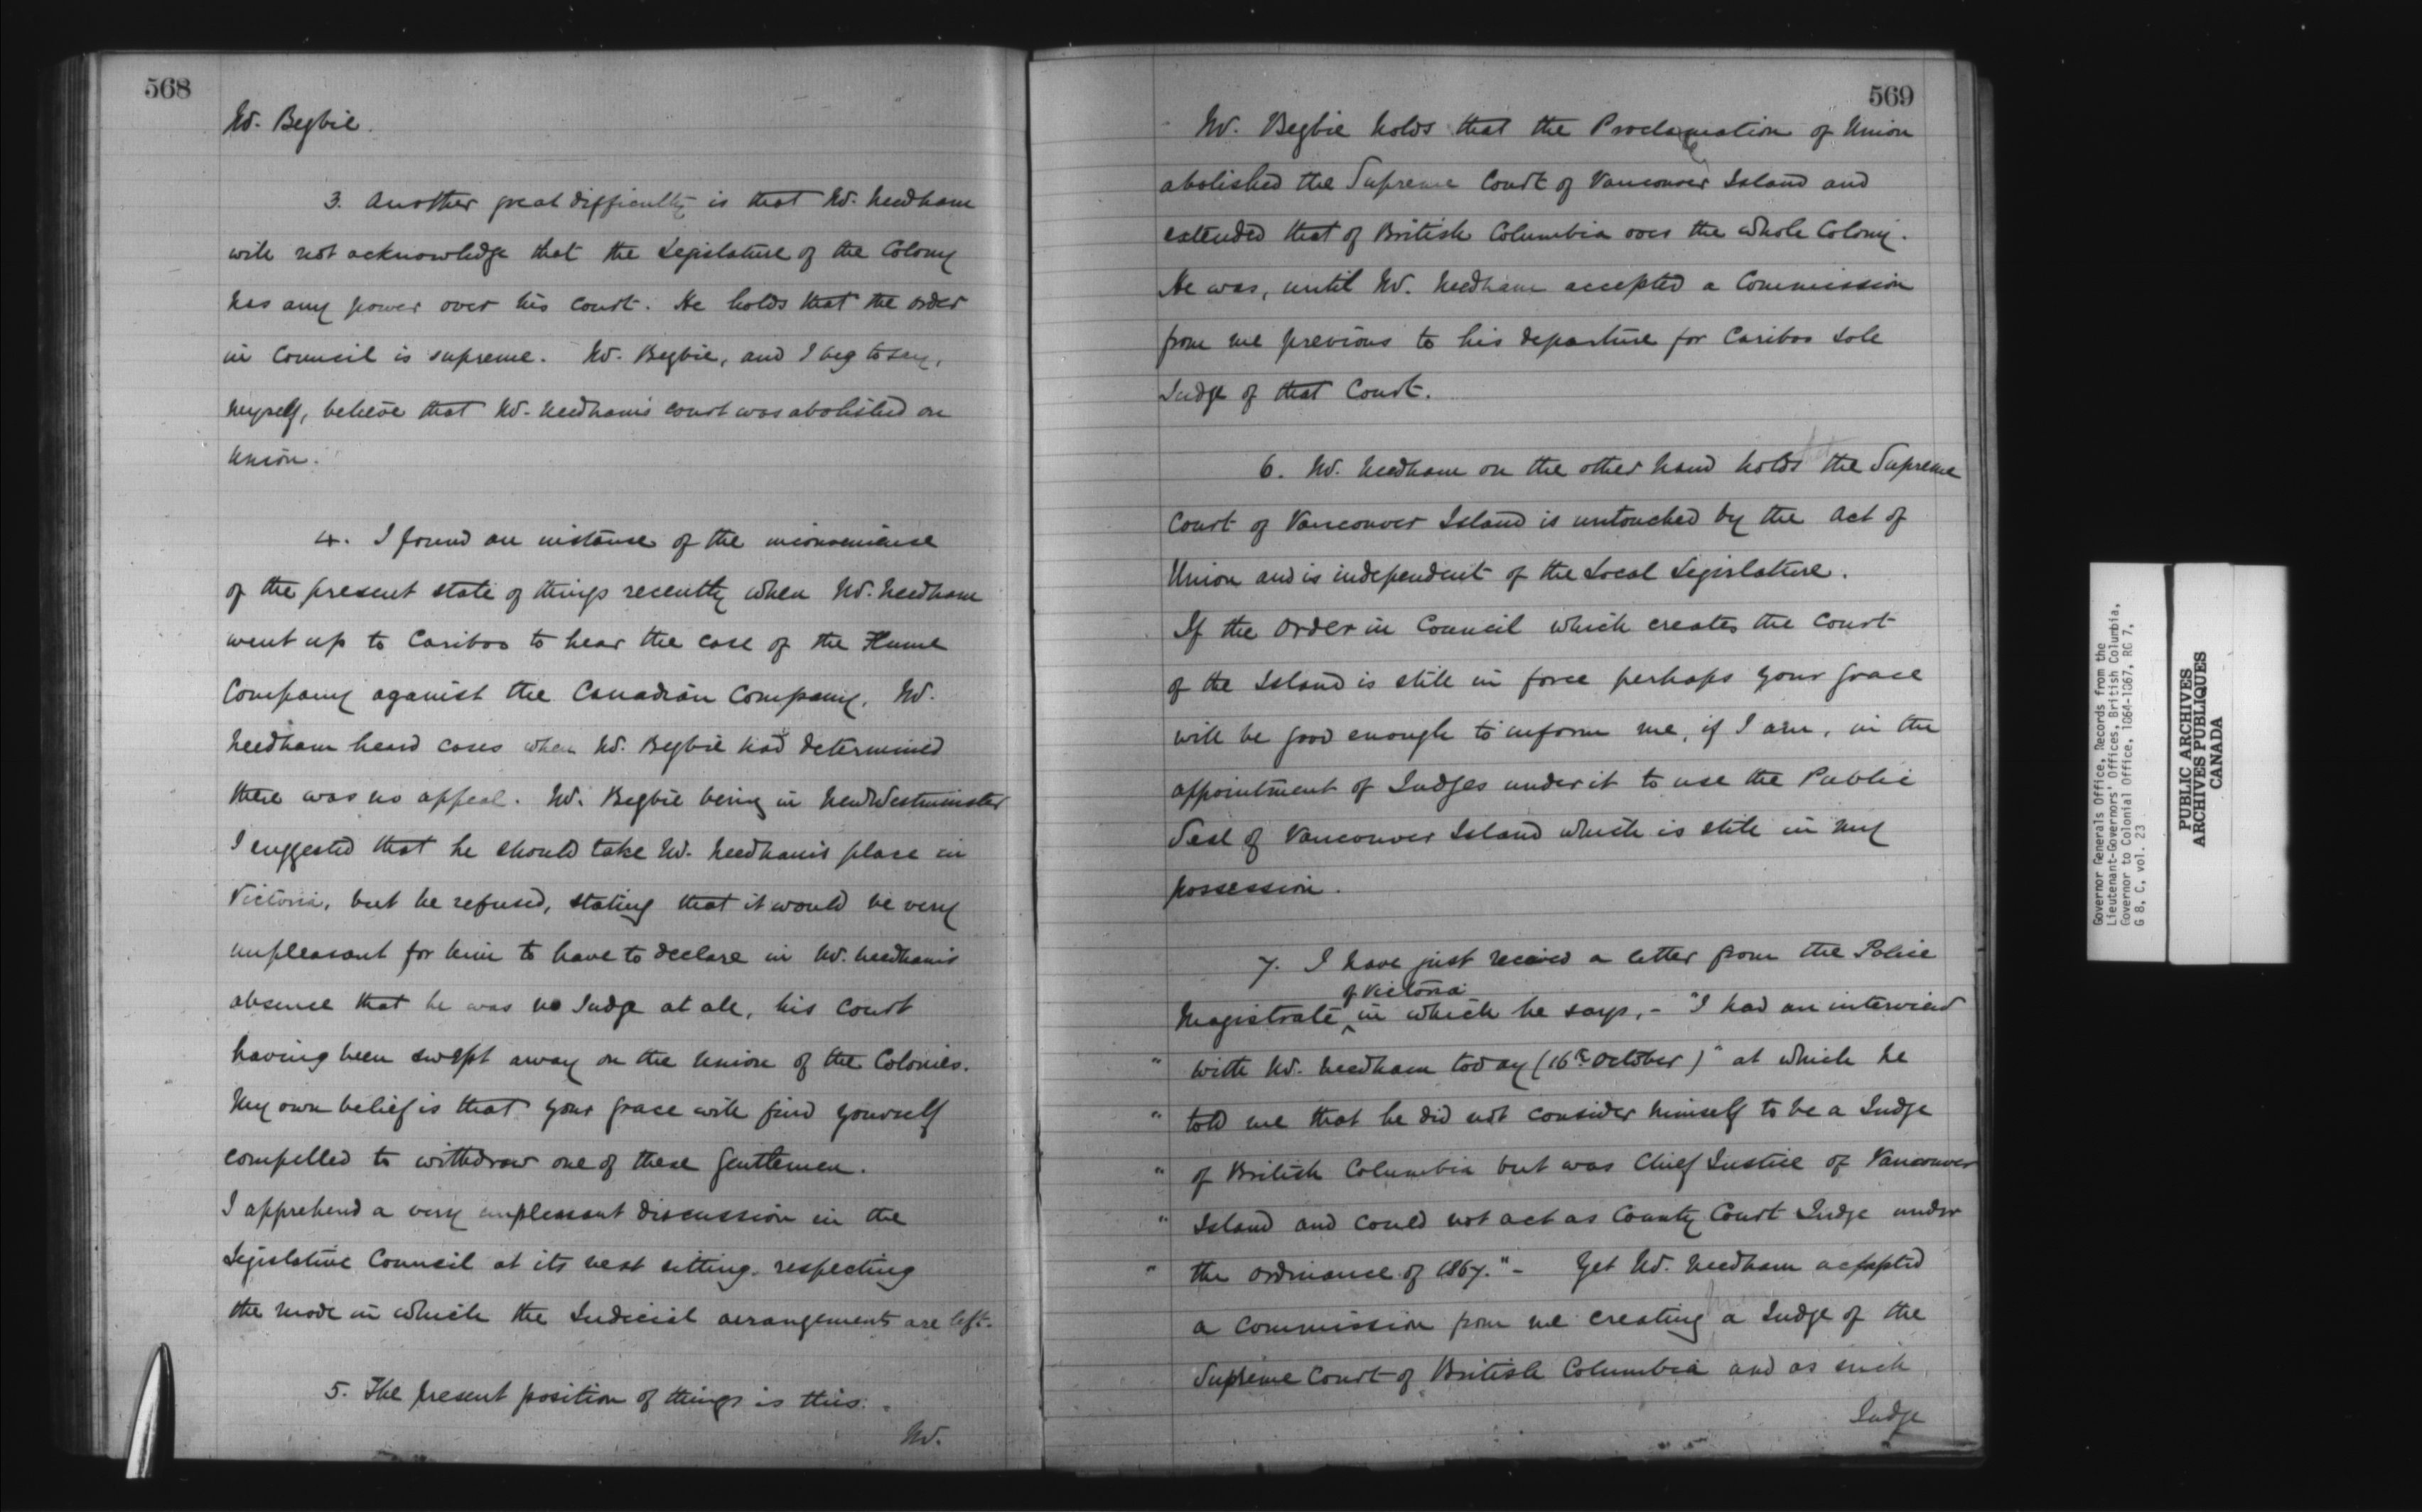 568
Mr. Begbie.
3. Another great difficulty is that Mr. Needham
will not acknowledge that the Legislature of the Colony
has any power over his court. He holds that the order
in Council is supreme. Mr. Begbie, and I beg to say,
myself, believe that Mr. Needham's court was abolished on
Union.
4. I found an instance of the inconvenience
of the present state of things recently when Mr. Needham
went up to Cariboo to hear the case of the Flume
Company against the Canadian Company. Mr.
Needham heard cases when Mr. Begbie had determined
there was no appeal. Mr. Begbie being in New Westminster
I suggested that he should take Mr. Needham's place in
Victoria, but he refused, stating that it would be very
unpleasant for him to have to declare in Mr. Needham's
absence that he was no Judge at all, his court
having been swept away on the Union of the Colonies.
My own belief is that your Grace will find yourself
compelled to withdraw one of these Gentlemen.
I apprehend a very unpleasant discussion in the
Legislative Council at its next sitting respecting
the mode in which the Judicial arrangements are left.
5. The present position of things is this.
Mr.
569
Mr. Begbie holds that the Proclamation of Union
abolished the Supreme Court of Vancouver Island and
extended that of British Columbia over the whole Colony.
He was, until Mr. Needham accepted a Commission
from me previous to his departure for Cariboo sole
Judge of that Court.
6. Mr. Needham on the other hand holds that the Supreme
Court of Vancouver Island is untouched by the Act of
Union and is independent of the Local Legislature.
If the Order in Council which creates the Court
of the Island is still in force perhaps your Grace
will be good enough to inform me, if I am, in the
appointment of Judges under it to use the Public
Seal of Vancouver Island which is still in my
possession.
7. I have just received a letter from the Police
of Victoria
Magistrate ^ in which he says, - "I had an interview
" with Mr. Needham today (16th October)" at which he
" told me that he did not consider himself to be a Judge
" of British Columbia but was Chief Justice of Vancouver
" Island and could not act as County Court Judge under
" the ordinance of 1867." - Yet Mr. Needham accepted
a Commission from me creating a Judge of the
Supreme Court of British Columbia and as such
Judge
Governor Generals Office, Records from the
Lieutenant-Governors' Offices, British Columbia,
Governor to Colonial Office, 1864-1867, RG 7,
G 8, C, vol. 23
PUBLIC ARCHIVES
ARCHIVES PUBLIQUES
CANADA